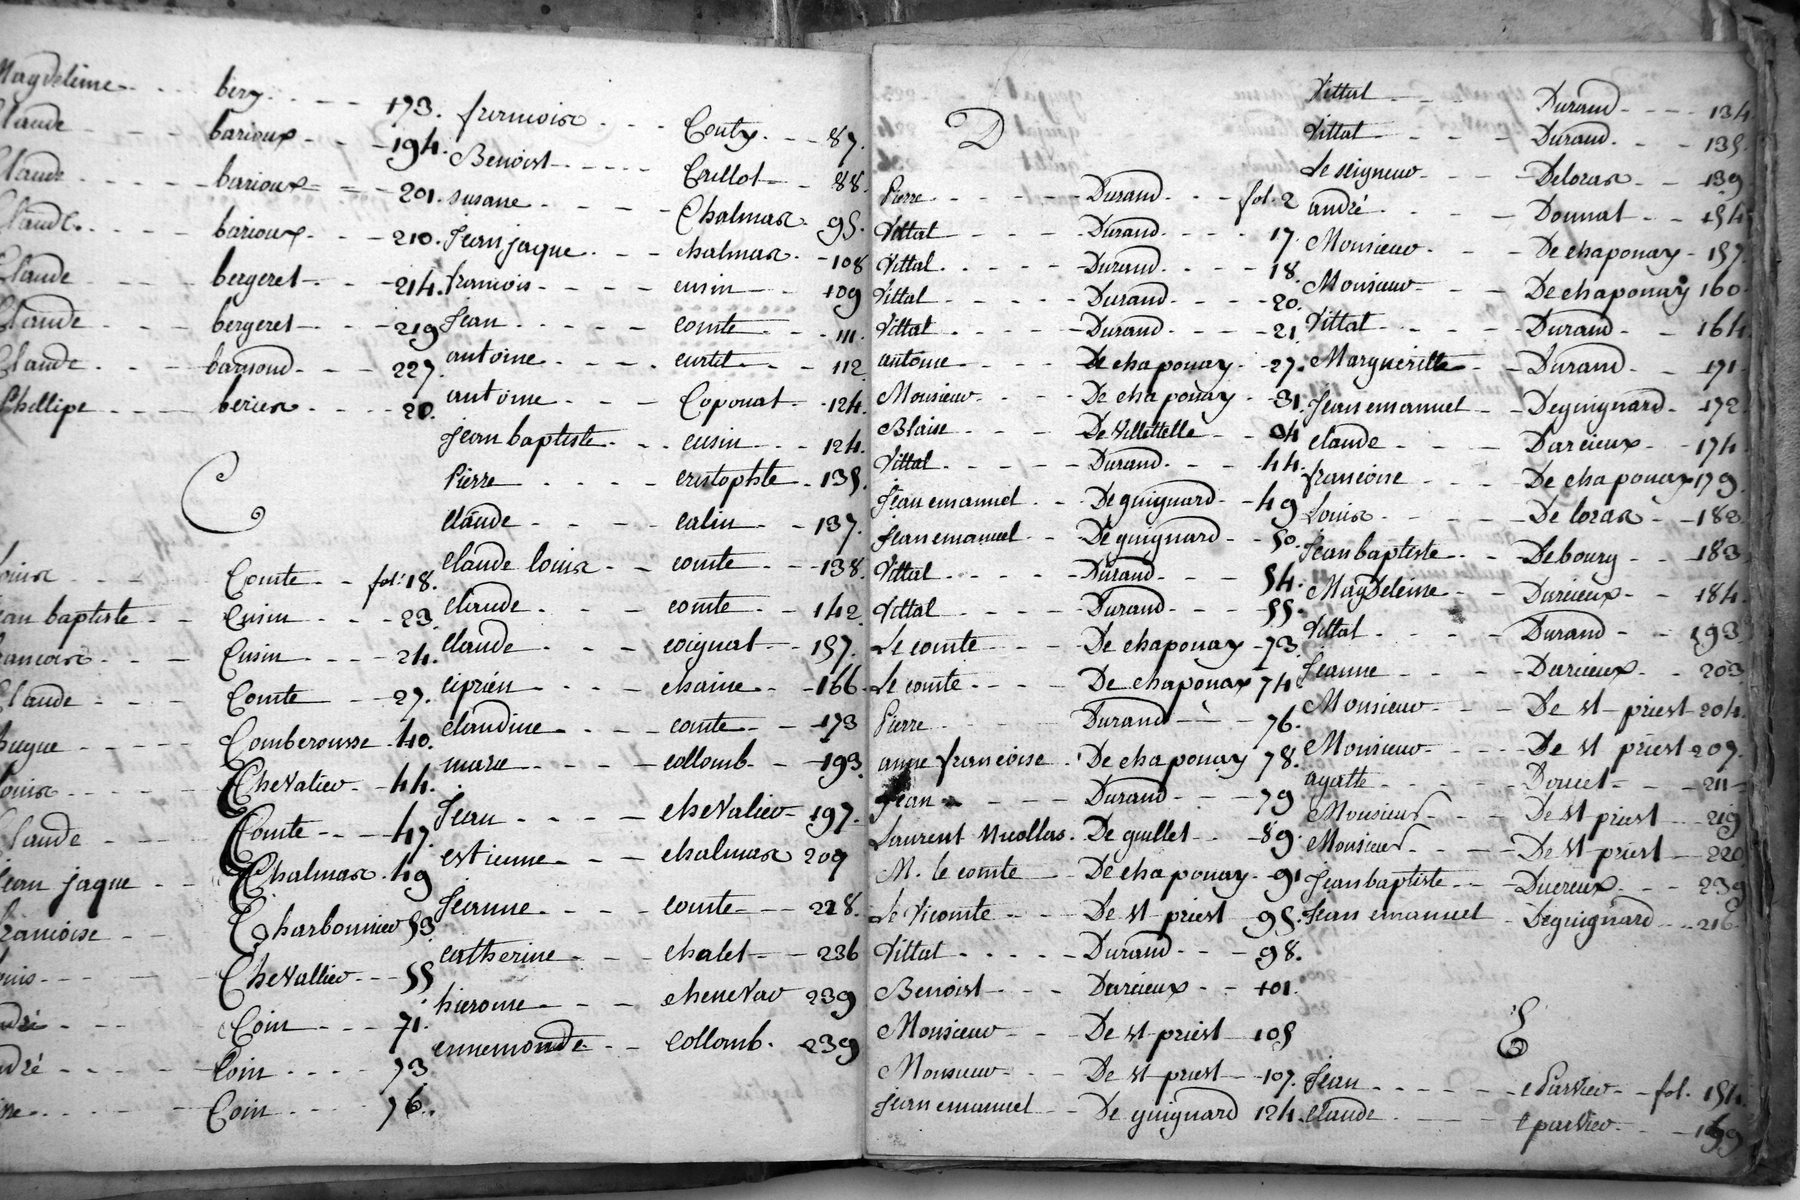 Magdeleine bery 173.
Claude barioux 194.
Claude barioux 201.
Claude barioux 210.
Claude bergeret 214.
Claude bergeret 219
Claude barnoud 227.
Phellipe berier 20.
C
Comte fol. 18.
Jean baptiste Cusin 23.
francoise Cusin 24.
Claude Comte 27.
hugue Comberousse 40.
Chevalier 44.
Claude Comte 47.
Jean jaque Chalmas 49
francoise Charbonnier 53
Chevallier 55
andré Coin 71.
andré Coin 73
Coin 76.
francoise Couty 87.
Benoist Caillot 88.
susane Chalmas 95.
Jean jaque chalmas 108
francois cusin 109
Jean comte 111.
antoine curtil 112
antoine Coponat 124.
Jean baptiste cusin 124.
Pierre cristophle 135.
claude calin 137.
claude louis comte 138.
claude comte 142
claude coignat 157.
ciprien chaine 166
claudine comte 173
marie collomb 193.
Jean chevalier 197.
estienne chalmas 209
Jeanne comte 228.
catherine chalet 236
hierome chenevar 239
ennemonde collomb. 239
D
Pierre Durand fol. 2
Vittal Durand 17.
Vittal Durand 18.
Vittal Durand 20.
Vittal Durand 21.
antoine De chaponay 27.
Monsieur De chaponay 31.
Blaise De Villettelle 34
Vittal Durand 44.
Jean emanuel De guignard 49
Jean emanuel De guignard 50.
Vittal Durand 54.
Vittal Durand 55.
Le comte De chaponay 73.
Le comte De chaponay 74.
Pierre Durand 76.
anne francoise De chaponay 78.
Jean Durand 79
Laurent Nicollas De guillet 89.
M. le comte De chaponay 91
Le Vicomte De st priest 95.
Vittal Durand 98.
Benoist Darcieux 101.
Monsieur De st priest 105
Monsieur De st priest 107.
Jean emanuel De guignard 124.
Vittal Durand 134
Vittal Durand 135.
Le seigneur Deloras 139
andré Donnat 154
Monsieur De chaponay 157
Monsieur De chaponay 160
Vittal Durand 164.
Marguéritte Durand 171
Jean emanuel Deguignard 172
claude Darcieux 174
francoise De chaponay 179.
Louis De loras 182
Jean baptiste Debourg 183
Magdeleine Darcieux 184.
Vittal Durand 193
Jeanne Darcieux 203
Monsieur De st priest 204.
Monsieur De st priest 207.
agathe Doucet 211
Monsieur De st priest 219
Monsieur De st priest 220
Jean baptiste Ducreux 239
Jean emanuel Deguignard 216.
E
Jean eparvier fol. 154.
claude eparvier 199